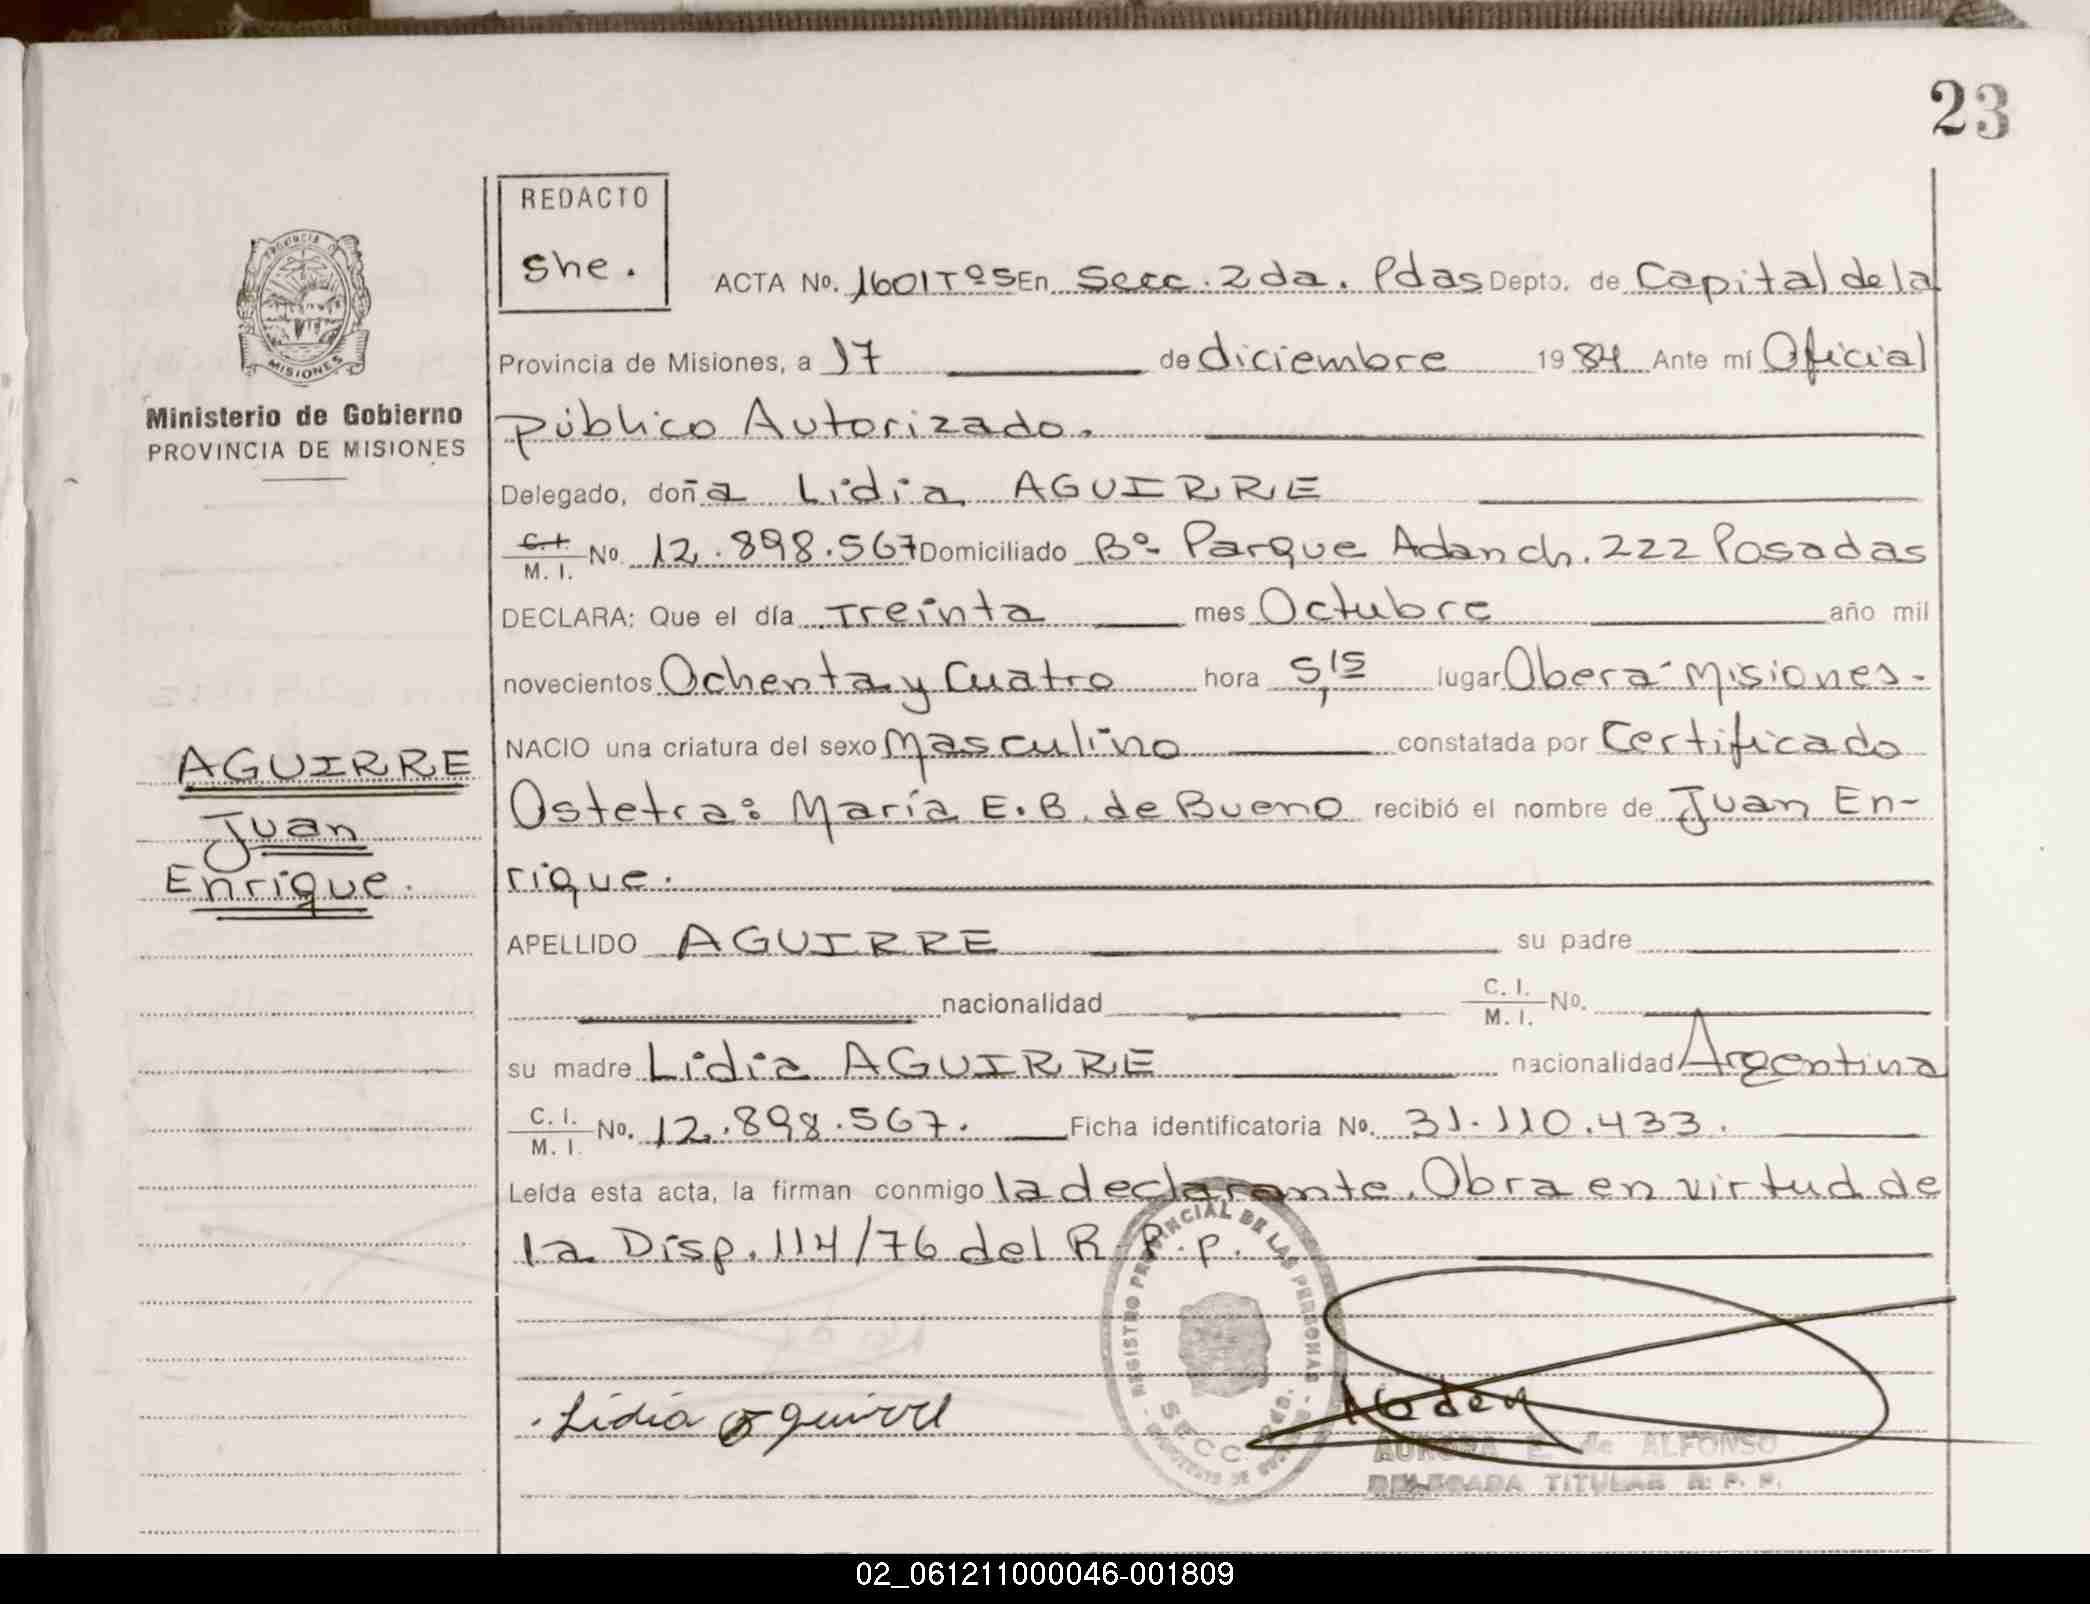 23
REDACTO
she.
PROVINCIA DE
MISIONES
Ministerio de Gobierno
PROVINCIA DE MISIONES
ACTA No. 1601 Tº 5 En Secc. 2da. Pdas Depto. de Capital de la
Provincia de Misiones, a 17 de diciembre 1984 Ante mí Oficial
público Autorizado.
Delegado, doña Lidia AGUIRRE
C.I. M. I. No. 12.898.567 Domiciliado Bº Parque Adan ch. 222 Posadas
DECLARA: Que el día Treinta mes Octubre año mil
novecientos Ochenta y Cuatro hora 5,15 lugar Obera-Misiones-
NACIO una criatura del sexo Masculino constatada por Certificado
Ostetra: María E.B. de Bueno recibió el nombre de Juan En-
rique.
AGUIRRE
Juan
Enrique.
APELLIDO AGUIRRE su padre
nacionalidad C. I. M. I. No.
su madre Lidia AGUIRRE nacionalidad Argentina
C. I. M. I. No. 12.898.567. Ficha identificatoria No. 31.110.433.
Leída esta acta, la firman conmigo la declarante. Obra en virtud de
la Disp. 114/76 del R.P.p.
REGISTRO PROVINCIAL DE LAS PERSONAS
SECC. 2da.
Lidia aguirre
AURORA E. de ALFONSO
DELEGADA TITULAR R. P. P.
02_061211000046-001809